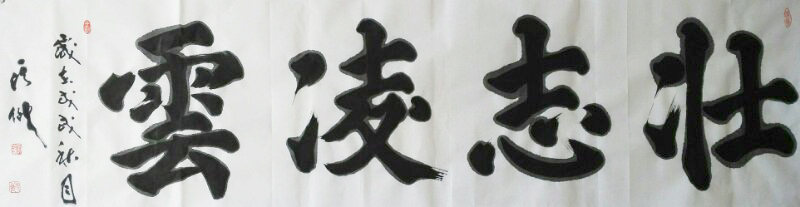 壮志凌雲
歲在戊戌秋月